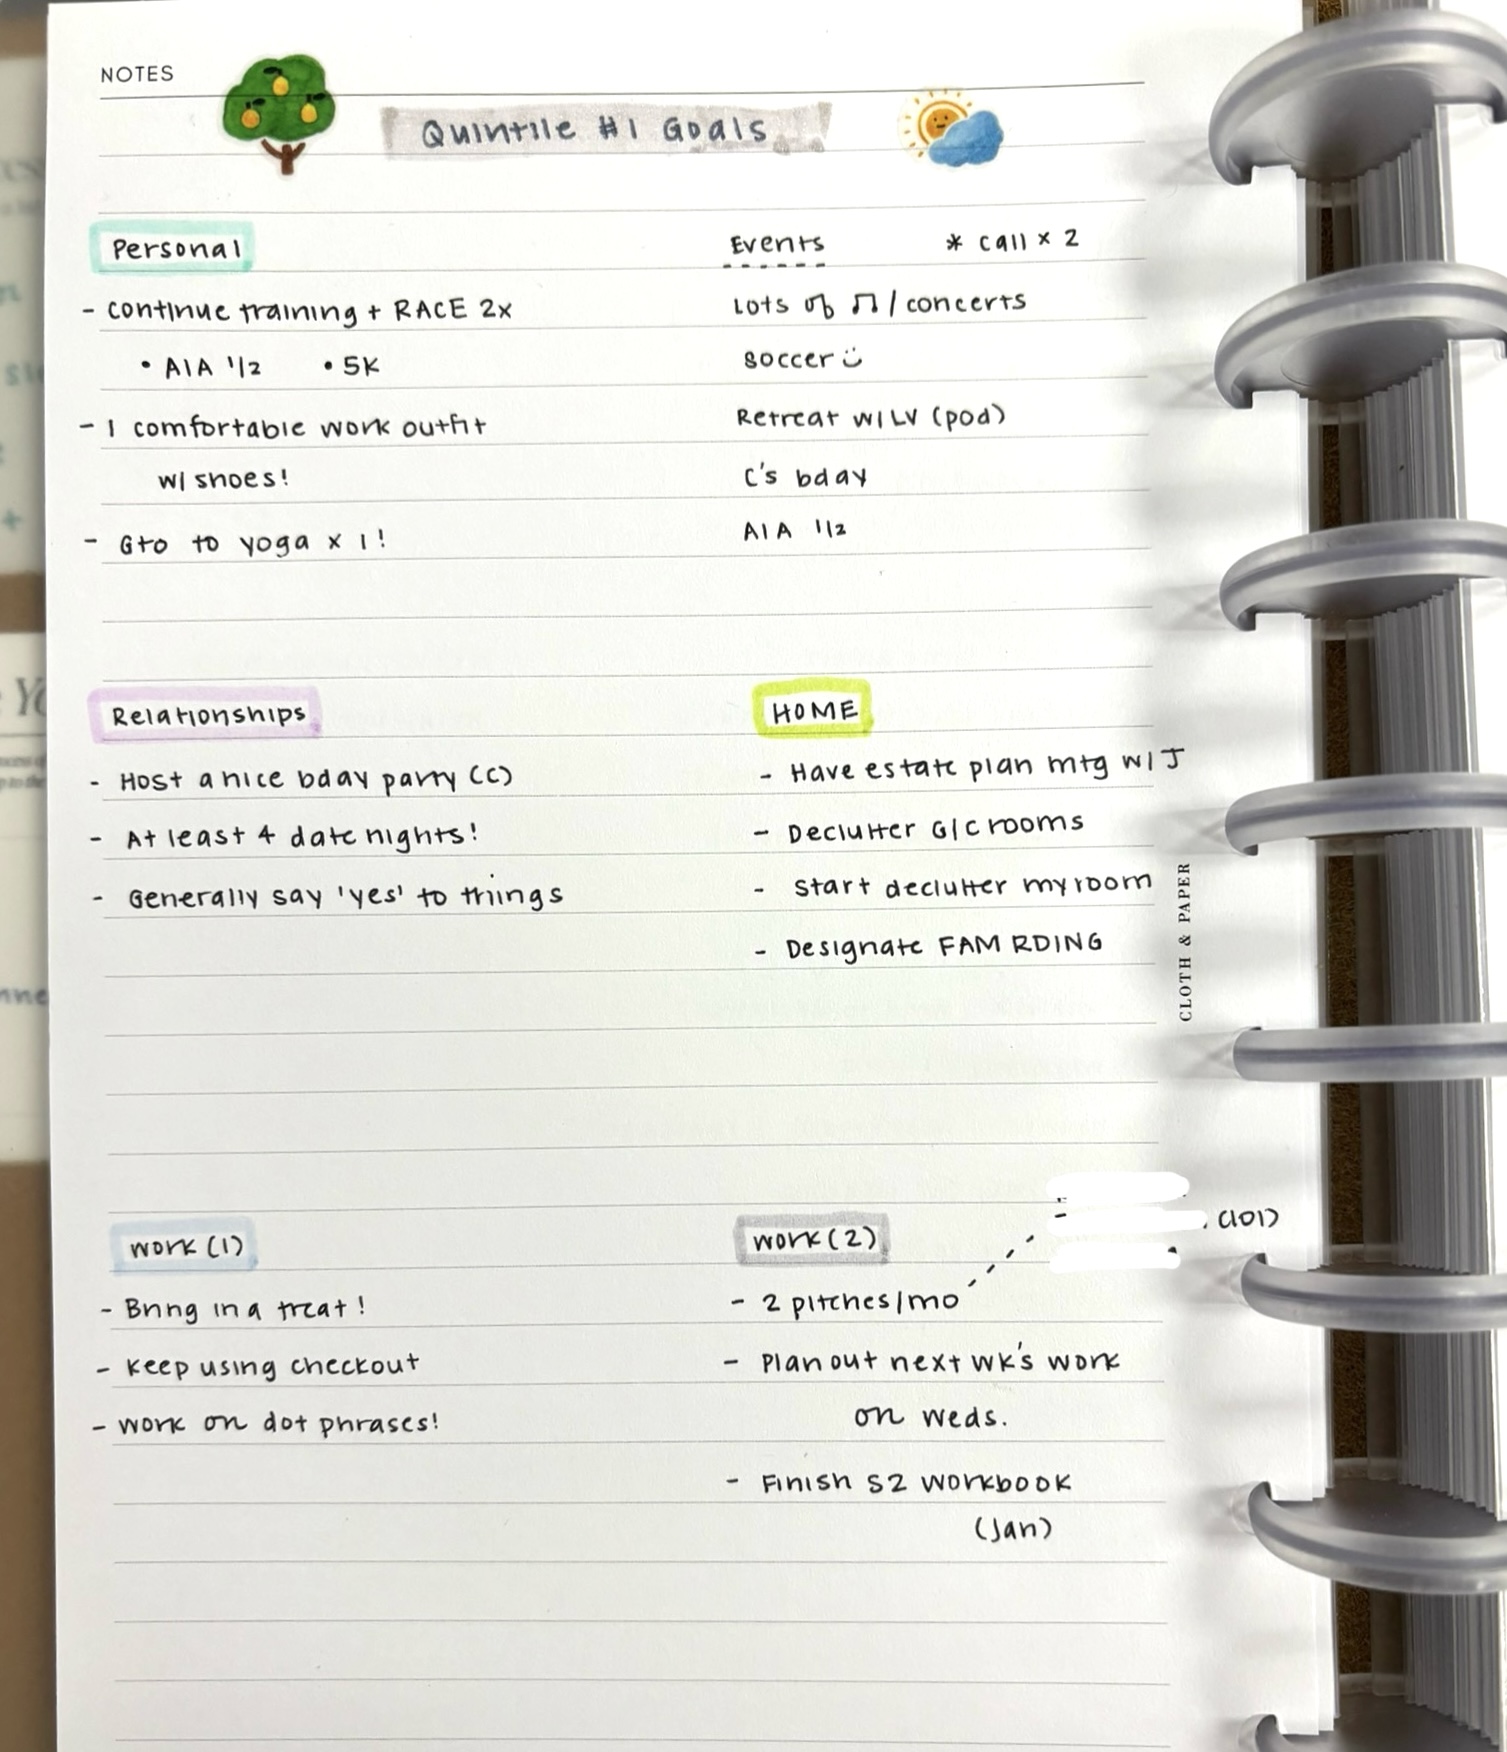 NOTES
Quintile #1 Goals
Personal
- continue training + RACE 2x
• A1A 1/2 • 5K
- 1 comfortable work outfit
w/ shoes!
- Gto to yoga x 1!
Events * call x 2
Lots of ♫ / concerts
soccer
Retreat w/ LV (pod)
C's bday
A1A 1/2
Relationships
- Host a nice bday party (C)
- At least 4 date nights!
- Generally say 'yes' to things
HOME
- Have estate plan mtg w/ J
- Declutter G/C rooms
- Start declutter my room
- Designate FAM RDING
CLOTH & PAPER
WORK (1)
- Bring in a treat!
- Keep using checkout
- Work on dot phrases!
WORK (2)
(101)
- 2 pitches/mo
- Plan out next wk's work
on weds.
- Finish S2 workbook
(Jan)